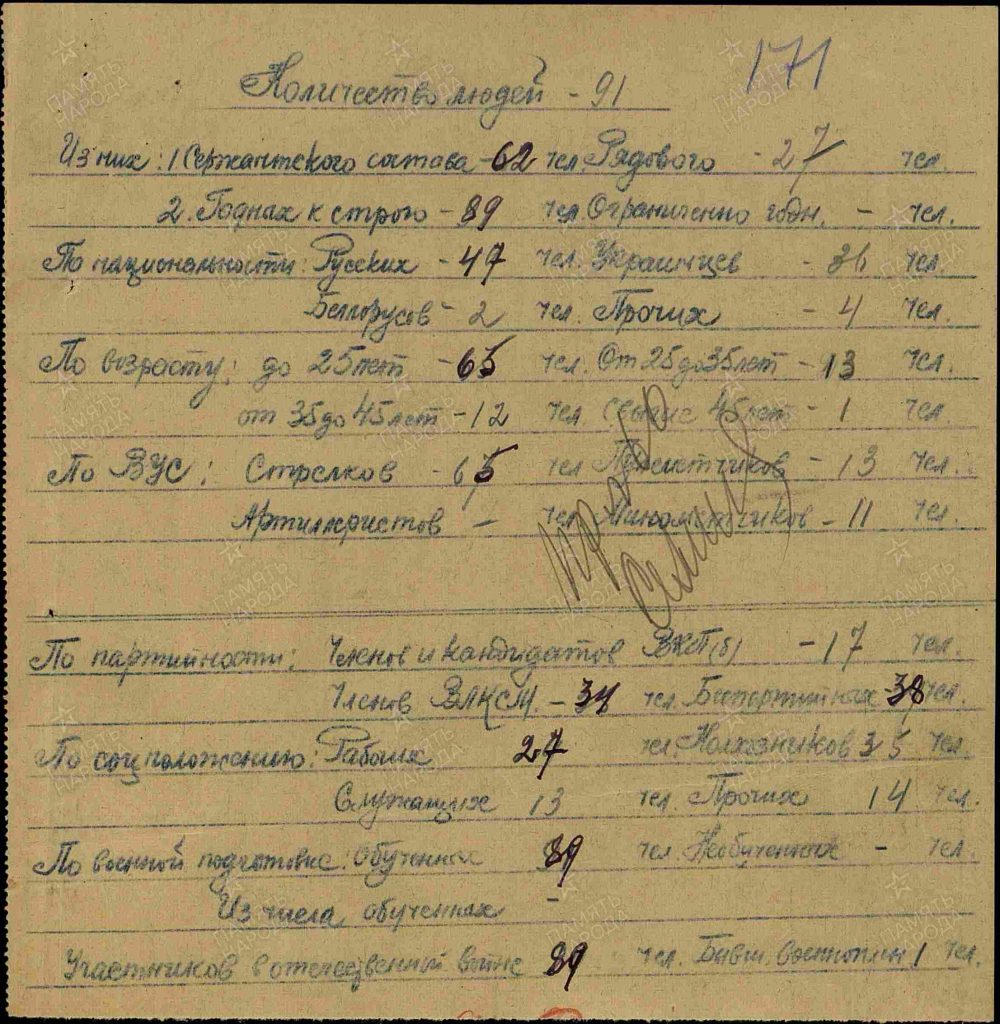 171
Количество людей - 91
Из них: 1 Сержантского состава - 62 чел. Рядового - 27 чел.
2. Годных к строю - 89 чел. Ограниченно годн. - чел.
По национальности: Русских - 47 чел. Украинцев - 36 чел.
Белорусов - 2 чел. Прочих - 4 чел.
По возрасту: до 25 лет - 65 чел. От 25 до 35 лет - 13 чел.
от 35 до 45 лет - 12 чел. Свыше 45 лет - 1 чел.
По ВУС: Стрелков - 65 чел. Пулеметчиков - 13 чел.
Артиллеристов - чел. Минометчиков - 11 чел.
По партийности: Членов и кандидатов ВКП(б) - 17 чел.
Членов ВЛКСМ. - 34 чел. Беспартийных - 38 чел.
По соцположению: Рабочих 27 чел. Колхозников 35 чел.
Служащих 13 чел. Прочих 14 чел.
По военной подготовке: Обученных 89 чел. Необученных - чел.
Из числа обученных -
Участников отечественной войне 89 чел. Бывш. военноплен 1 чел.
ПАМЯТЬ НАРОДА